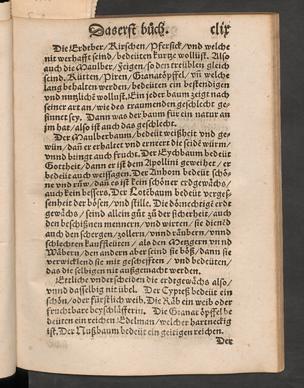 Das erst büch. clix
Die Erdeber / Kirschen / Pfersick / vnd welche
nit werhafft seind / bedeüten kurtze wollüst. Also
auch die Maulber / Feigen / so den treüblen gleich
seind. Kütten / Piren / Granatöpffel / vñ welche
lang behalten werden / bedeüten ein bestendigen
vnd nutzlichẽ wollust. Ein jeder baum zeigt nach
seiner art an / wie des traumenden geschlecht ge-
sinnet sey. Dann was der baum für ein natur an
jm hat / also ist auch das geschlecht.
Der Maulberbaum / bedeüt weißheit vnd ge-
wün / dañ er erhaltet vnd erneert die seidẽ würm /
vnnd bringt auch frucht. Der Eychbaum bedeüt
Gottheit / dann er ist dem Apollini geweihet / er
bedeüt auch weissagen. Der Anhorn bedeüt schö-
ne vnd / dañ es ist kein schöner erdgewächs /
auch kein bessers. Der Lotsbaum bedeüt vergeß-
senheit der bösen / vnd stille. Die dönechtige erd
gewächs / seind allein gůt zů der sicherheit / auch
den beschißnen mennern / vnd wirten / sie dienẽd
auch den schergen / zollern / vnnd räubern / vnnd
schlechten kauffleüten / als den Metzgern vnnd
Wäbern / den andern aber seind sie böß / dann sie
verwicklend sie mit geschefften / vnd bedeüten /
das die selbigen nit außgemacht werden.
Etliche vnderscheiden die erdtgewächs also /
vnnd dasselbig nit übel. Der Cypreß bedeüt ein
schön / oder fürstlich weib. Die Räb ein weib oder
fruchtbare beyschläfferin. Die Granat öpffel be
deüten ein reichen Edelman / welcher hartneckig
ist. Der Nußbaum bedeüt ein geitigen reichen.
Der